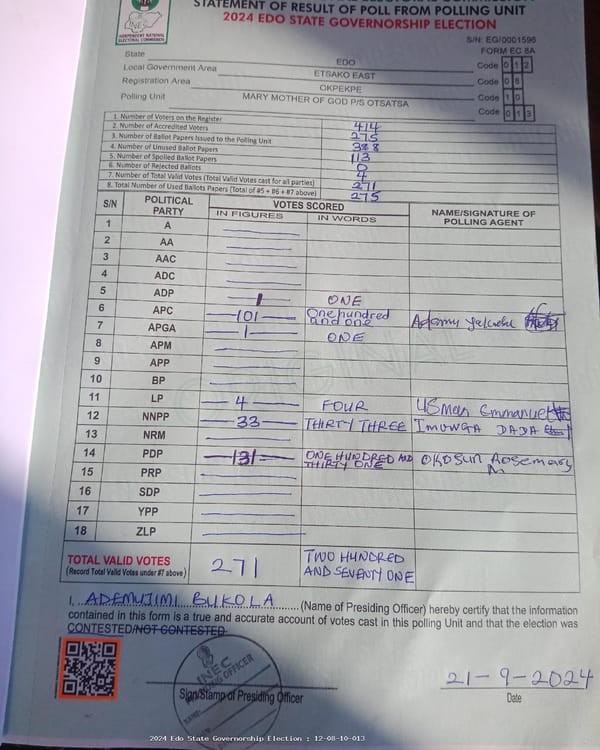 STATEMENT OF RESULT OF POLL FROM POLLING UNIT
2024 EDO STATE GOVERNORSHIP ELECTION
INEC
INDEPENDENT NATIONAL
ELECTORAL COMMISSION
S/N: EG/0001596
FORM EC 8A
State EDO Code 0 1 2
Local Government Area ETSAKO EAST Code 0 8
Registration Area OKPEKPE Code 1 0
Polling Unit MARY MOTHER OF GOD P/S OTSATSA Code 0 1 3
1. Number of Voters on the Register 414
2. Number of Accredited Voters 275
3. Number of Ballot Papers Issued to the Polling Unit 388
4. Number of Unused Ballot Papers 113
5. Number of Spoiled Ballot Papers 0
6. Number of Rejected Ballots 4
7. Number of Total Valid Votes (Total Valid Votes cast for all parties) 271
8. Total Number of Used Ballots Papers (Total of #5 + #6 + #7 above) 275
S/N POLITICAL PARTY VOTES SCORED NAME/SIGNATURE OF POLLING AGENT
IN FIGURES IN WORDS
1 A
2 AA
3 AAC
4 ADC
5 ADP 1 ONE
6 APC 101 One hundred and one
7 APGA 1 ONE
8 APM
9 APP
10 BP
11 LP 4 FOUR Usman Emmanuel
12 NNPP 33 THIRTY THREE IMUWGA DADA
13 NRM
14 PDP 131 ONE HUNDRED AND THIRTY ONE OKOSUN Rosemary
15 PRP
16 SDP
17 YPP
18 ZLP
ORIGINAL
TOTAL VALID VOTES 271 TWO HUNDRED AND SEVENTY ONE
(Record Total Valid Votes under #7 above)
I, ADEMUJIMI BUKOLA (Name of Presiding Officer) hereby certify that the information
contained in this form is a true and accurate account of votes cast in this polling Unit and that the election was
CONTESTED/NOT CONTESTED.
INEC
OFFICER
Sign/Stamp of Presiding Officer
21-9-2024
Date
2024 Edo State Governorship Election : 12-08-10-013